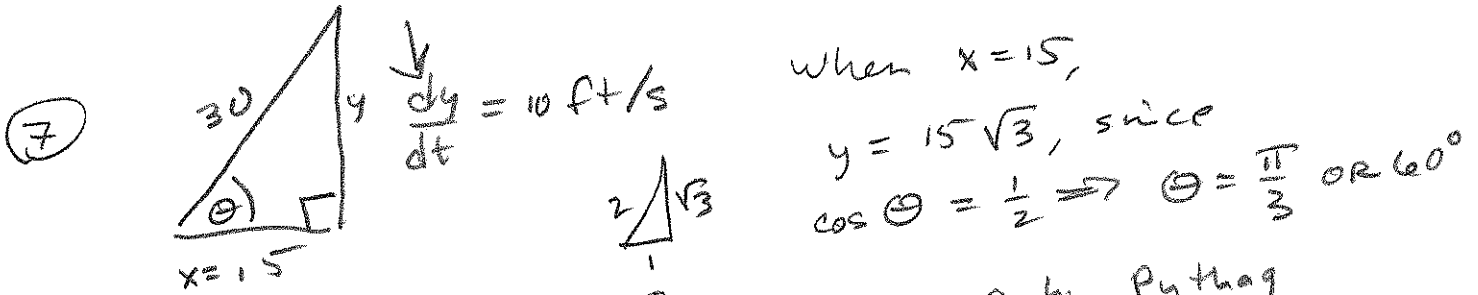 7
30
y
dy/dt = 10 ft/s
θ
x=15
2
√3
1
when x=15,
y = 15√3, since
cos θ = 1/2 ⇒ θ = π/3 OR 60°
by Pythag